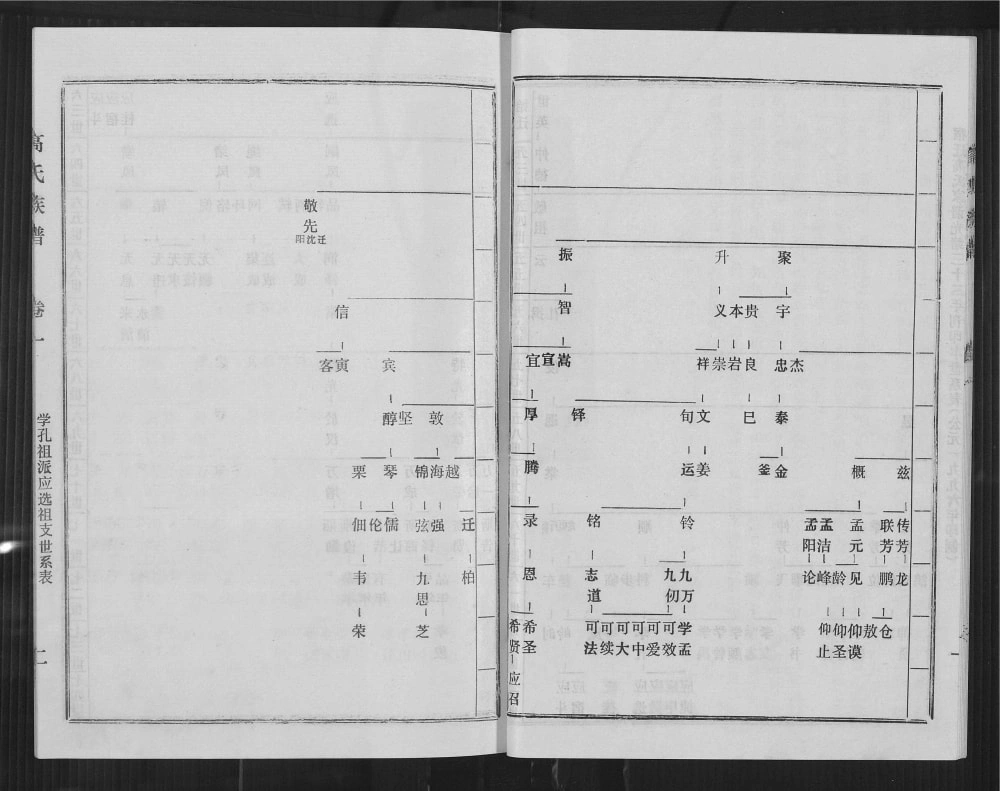 聚 升 振
宇 贵 本 义 智
杰 忠 良 岩 崇 祥 嵩 宣 宜
泰 巳 文 旬 铎 厚
兹 概 金 釜 姜 运 腾
传芳 联芳 孟元 孟洁 孟阳 铃 铭 录
龙 鹏 见 龄 峰 论 九万 九仞 志道 恩
仓 敖 仰谟 仰圣 仰止 学孟 可效 可爱 可中 可大 可续 可法 希圣 希贤
应召
敬先
迁沈阳
信
宾 寅 客
敦 坚 醇
越 海 锦 琴 栗
迁 强 弦 儒 伦 佃
柏 九思 韦
芝 荣
高氏族谱
卷一
学孔祖派应选祖支世系表
二